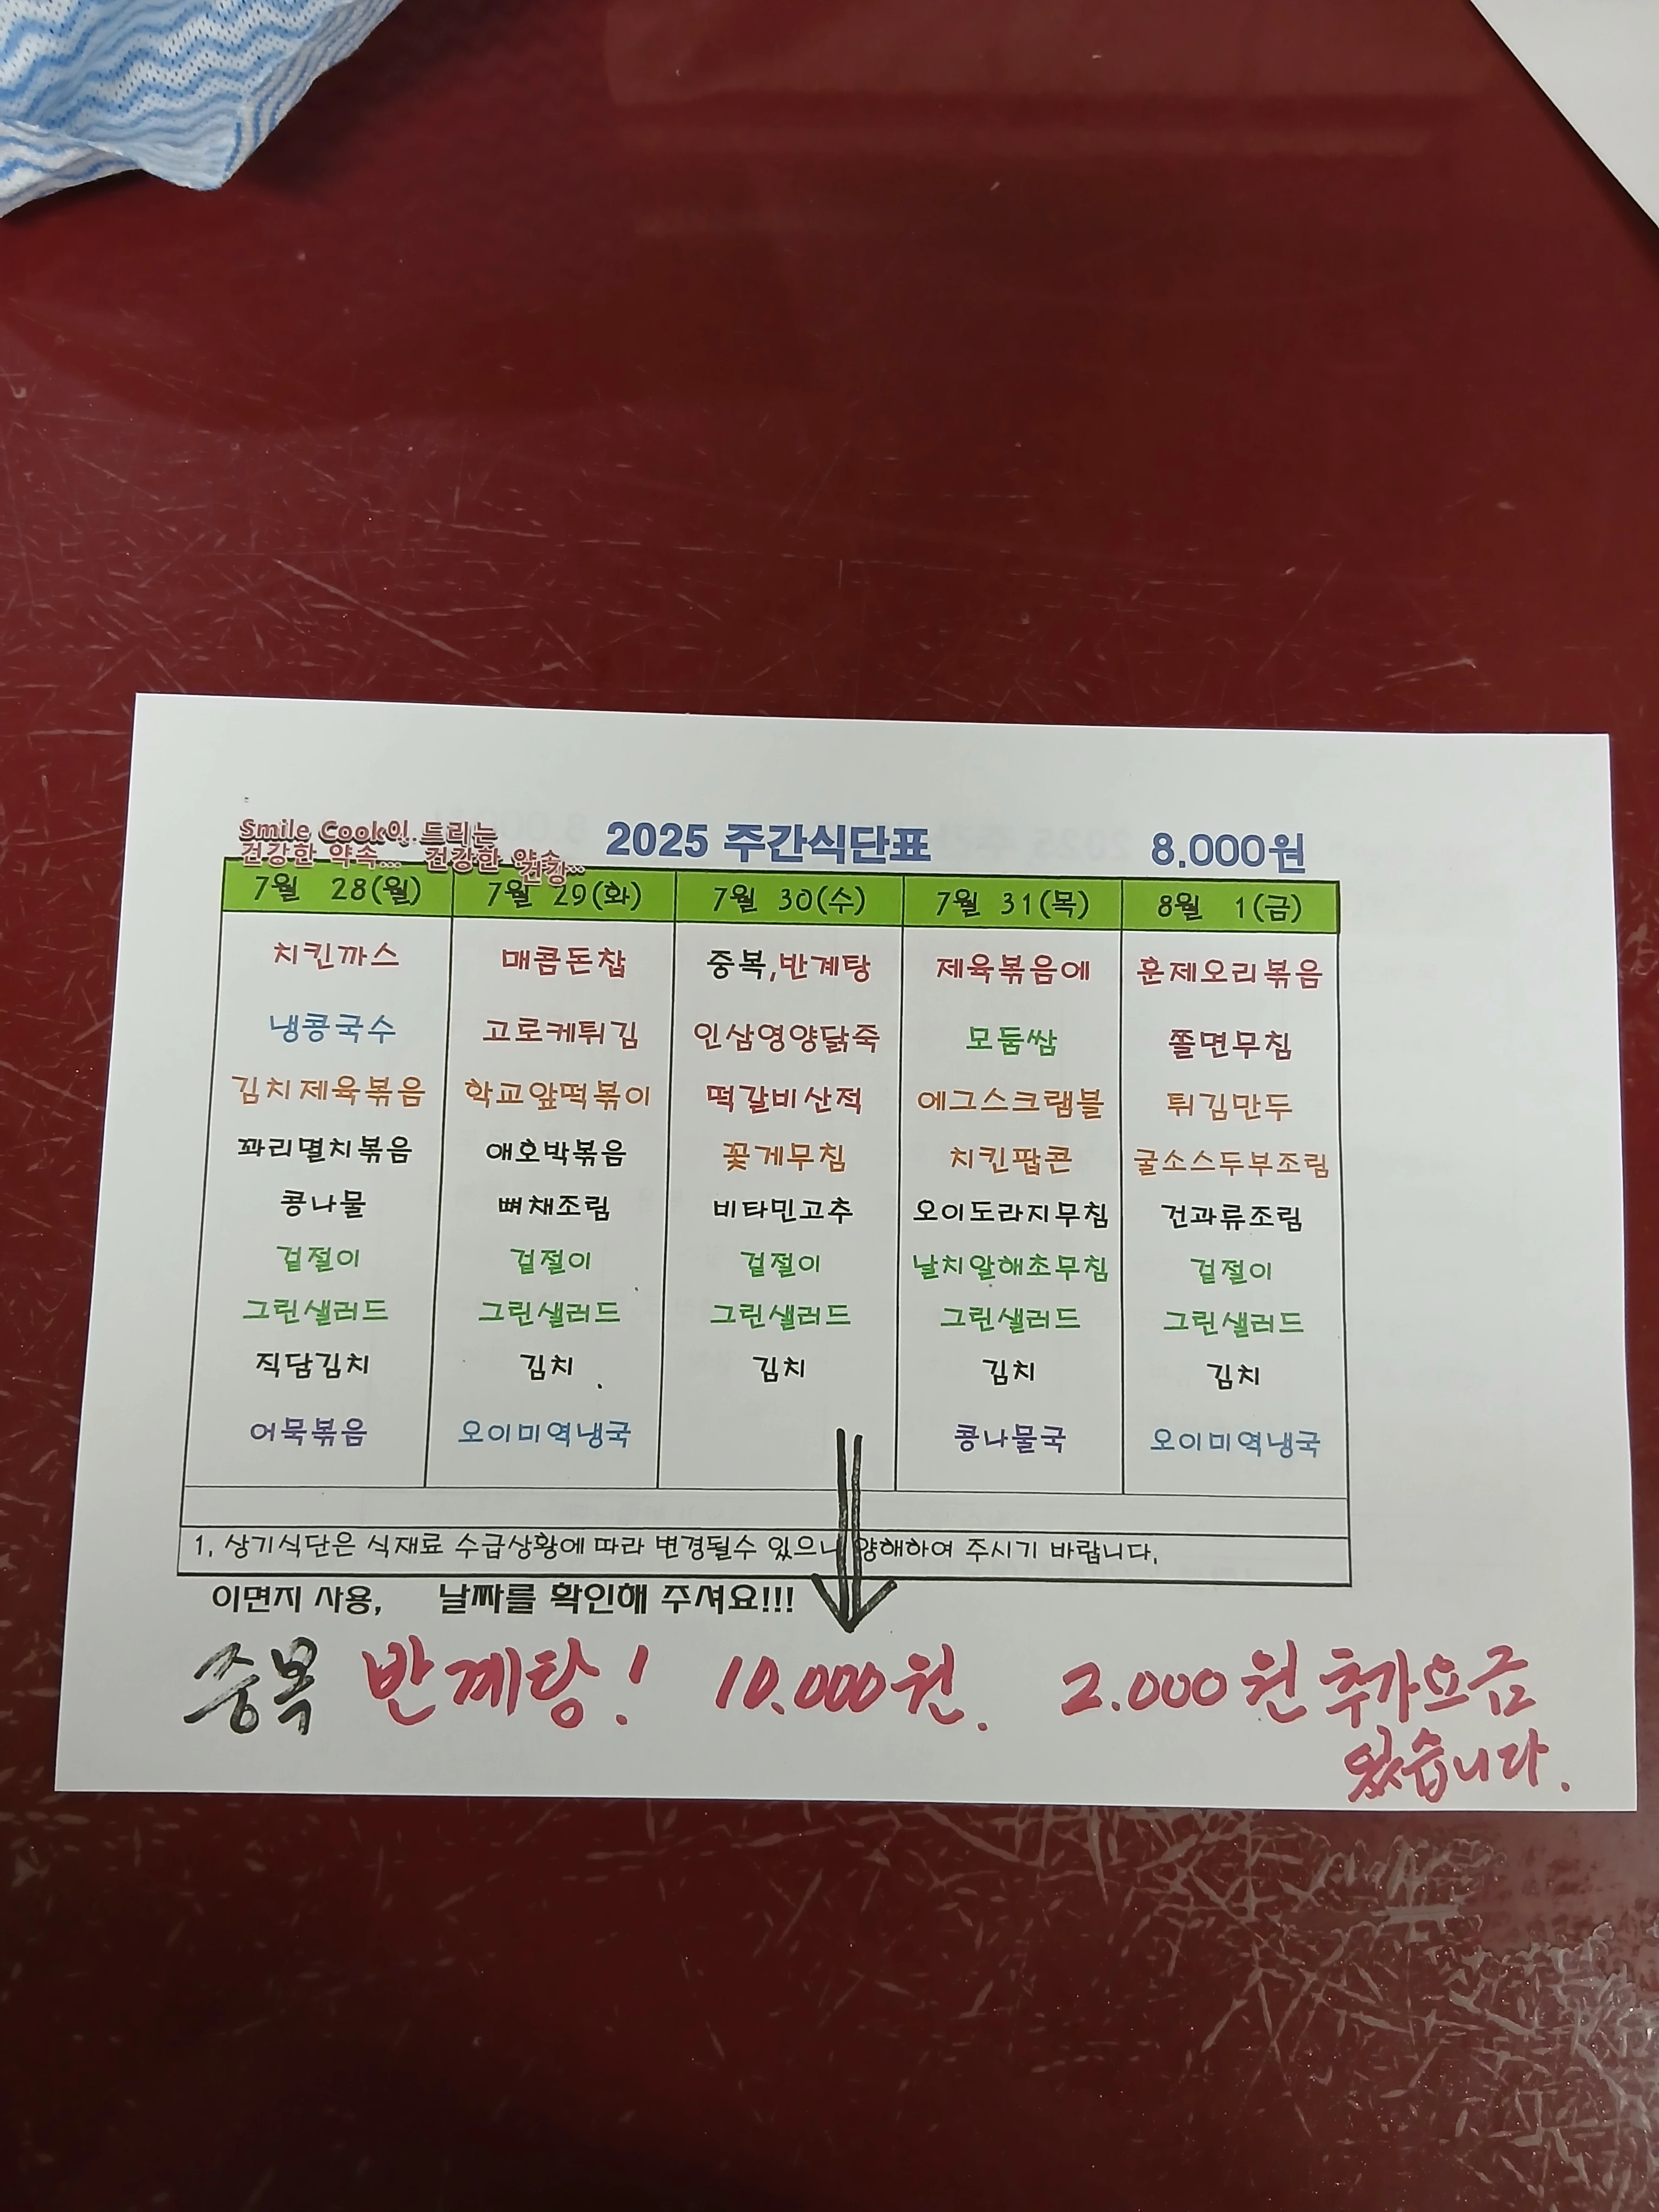 Smile Cook이 드리는
건강한 약속... 건강한 약속...
건강
2025 주간식단표 8.000원
7월 28(월) 7월 29(화) 7월 30(수) 7월 31(목) 8월 1(금)
치킨까스 매콤돈찹 중복,반계탕 제육볶음에 훈제오리볶음
냉콩국수 고로케튀김 인삼영양닭죽 모둠쌈 쫄면무침
김치제육볶음 학교앞떡볶이 떡갈비산적 에그스크램블 튀김만두
꽈리멸치볶음 애호박볶음 꽃게무침 치킨팝콘 굴소스두부조림
콩나물 뼈채조림 비타민고추 오이도라지무침 건과류조림
겉절이 겉절이 겉절이 날치알해초무침 겉절이
그린샐러드 그린샐러드 그린샐러드 그린샐러드 그린샐러드
직담김치 김치 김치 김치 김치
어묵볶음 오이미역냉국 콩나물국 오이미역냉국
1, 상기식단은 식재료 수급상황에 따라 변경될수 있으니 양해하여 주시기 바랍니다.
이면지 사용, 날짜를 확인해 주셔요!!!
중복 반계탕! 10.000원. 2.000원 추가요금
있습니다.